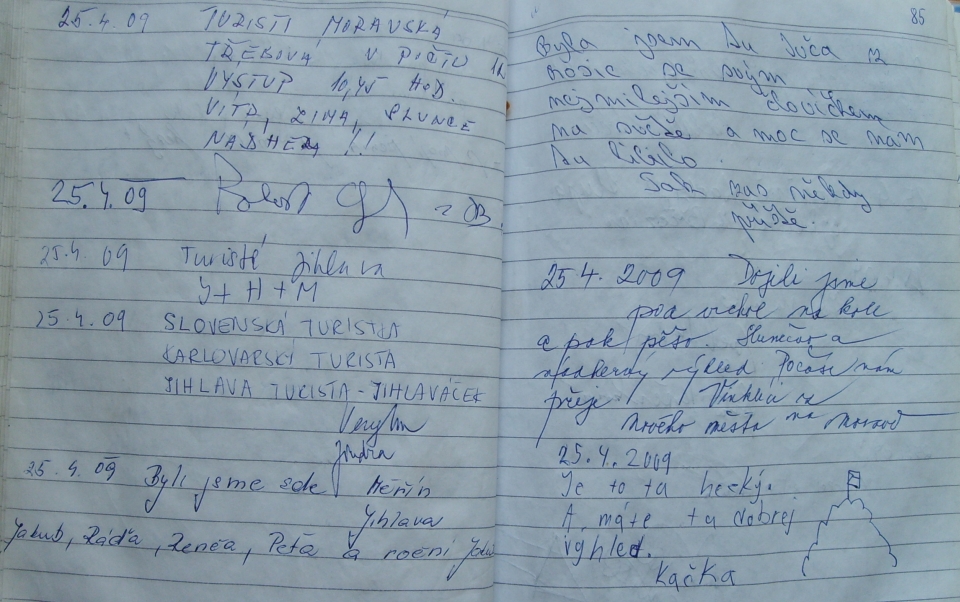 25.4.09 TURISTI MORAVSKÁ
TŘEBOVÁ V POČTU
VÝSTUP 10,45 HOD.
VÍTR, ZIMA, SLUNCE
NÁDHERA !!
25.4.09 Robert z JB.
25.4.09 Turisté Jihlava
J+H+M
25.4.09 SLOVENSKÁ TURISTKA
KARLOVARSKÝ TURISTA
JIHLAVA TURISTA - JIHLAVÁČEK
Jindra
25.4.09 Byli jsme zde Měřín
Jihlava
Jakub, Ráďa, Renča, Peťa a roční
85
Byla jsem tu Júča z
Rosic se svým
nejmilejším človíčkem
na světě a moc se nám
tu líbilo.
Tak zas někdy
příště.
25.4.2009 Dojeli jsme
pod vrchol na kole
a pak pěšo. Slunečno a
nádherný výhled Počasí nám
přeje!
Nového města na Moravě
25.4.2009
Je to tu hezký.
A máte tu dobrej
výhled.
Kačka